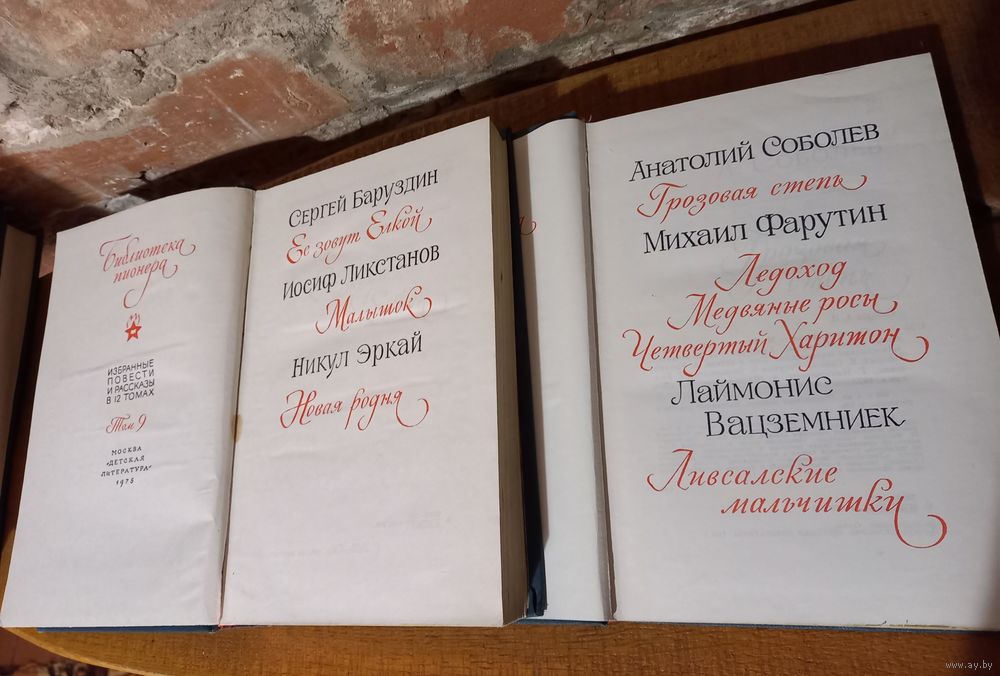 Библиотека
пионера
ИЗБРАННЫЕ
ПОВЕСТИ
И РАССКАЗЫ
В 12 ТОМАХ
Том 9
МОСКВА
«ДЕТСКАЯ
ЛИТЕРАТУРА»
1975
Сергей Баруздин
Ее зовут Елкой
Иосиф Ликстанов
Малышок
Никул Эркай
Новая родня
Анатолий Соболев
Грозовая степь
Михаил Фарутин
Ледоход
Медвяные росы
Четвертый Харитон
Лаймонис
Вацземниек
Ливсалские
мальчишки
www.ay.by